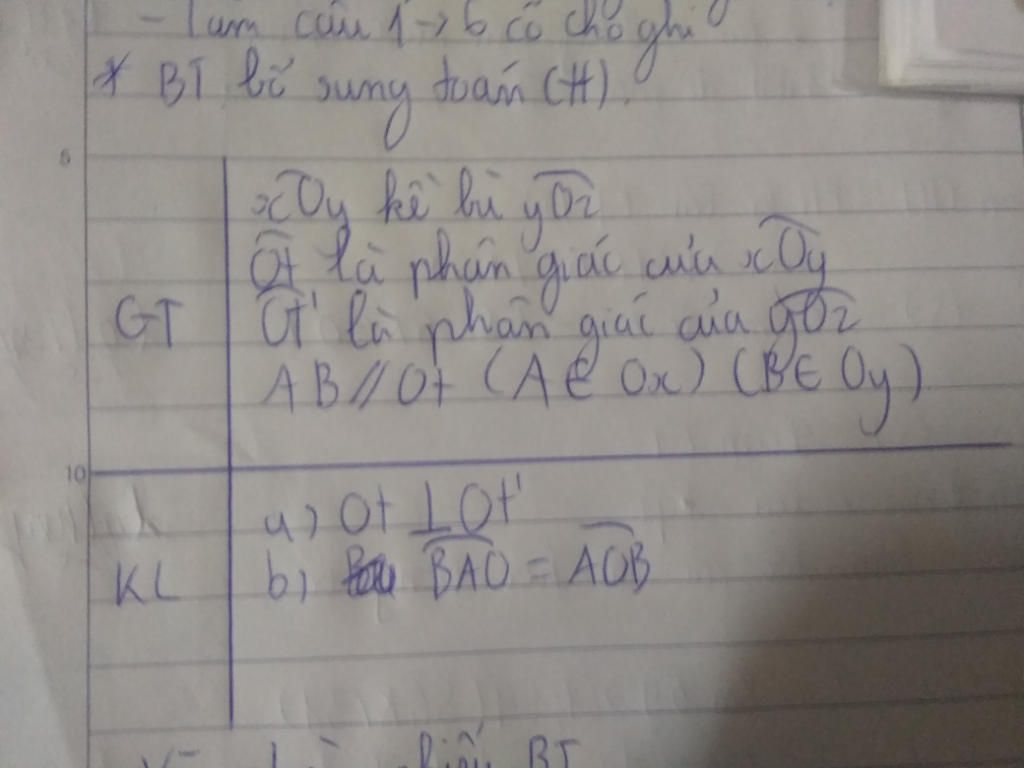 - Làm câu 1 → 6 có chỗ ghi
* BT bổ sung toán (H).
5
xOy kề bù yOz
Ot là phân giác của xOy
GT Ot' là phân giác của yOz
AB // Ot (A ∈ Ox) (B ∈ Oy)
10
a) Ot ⊥ Ot'
KL b) BAO = AOB
BT